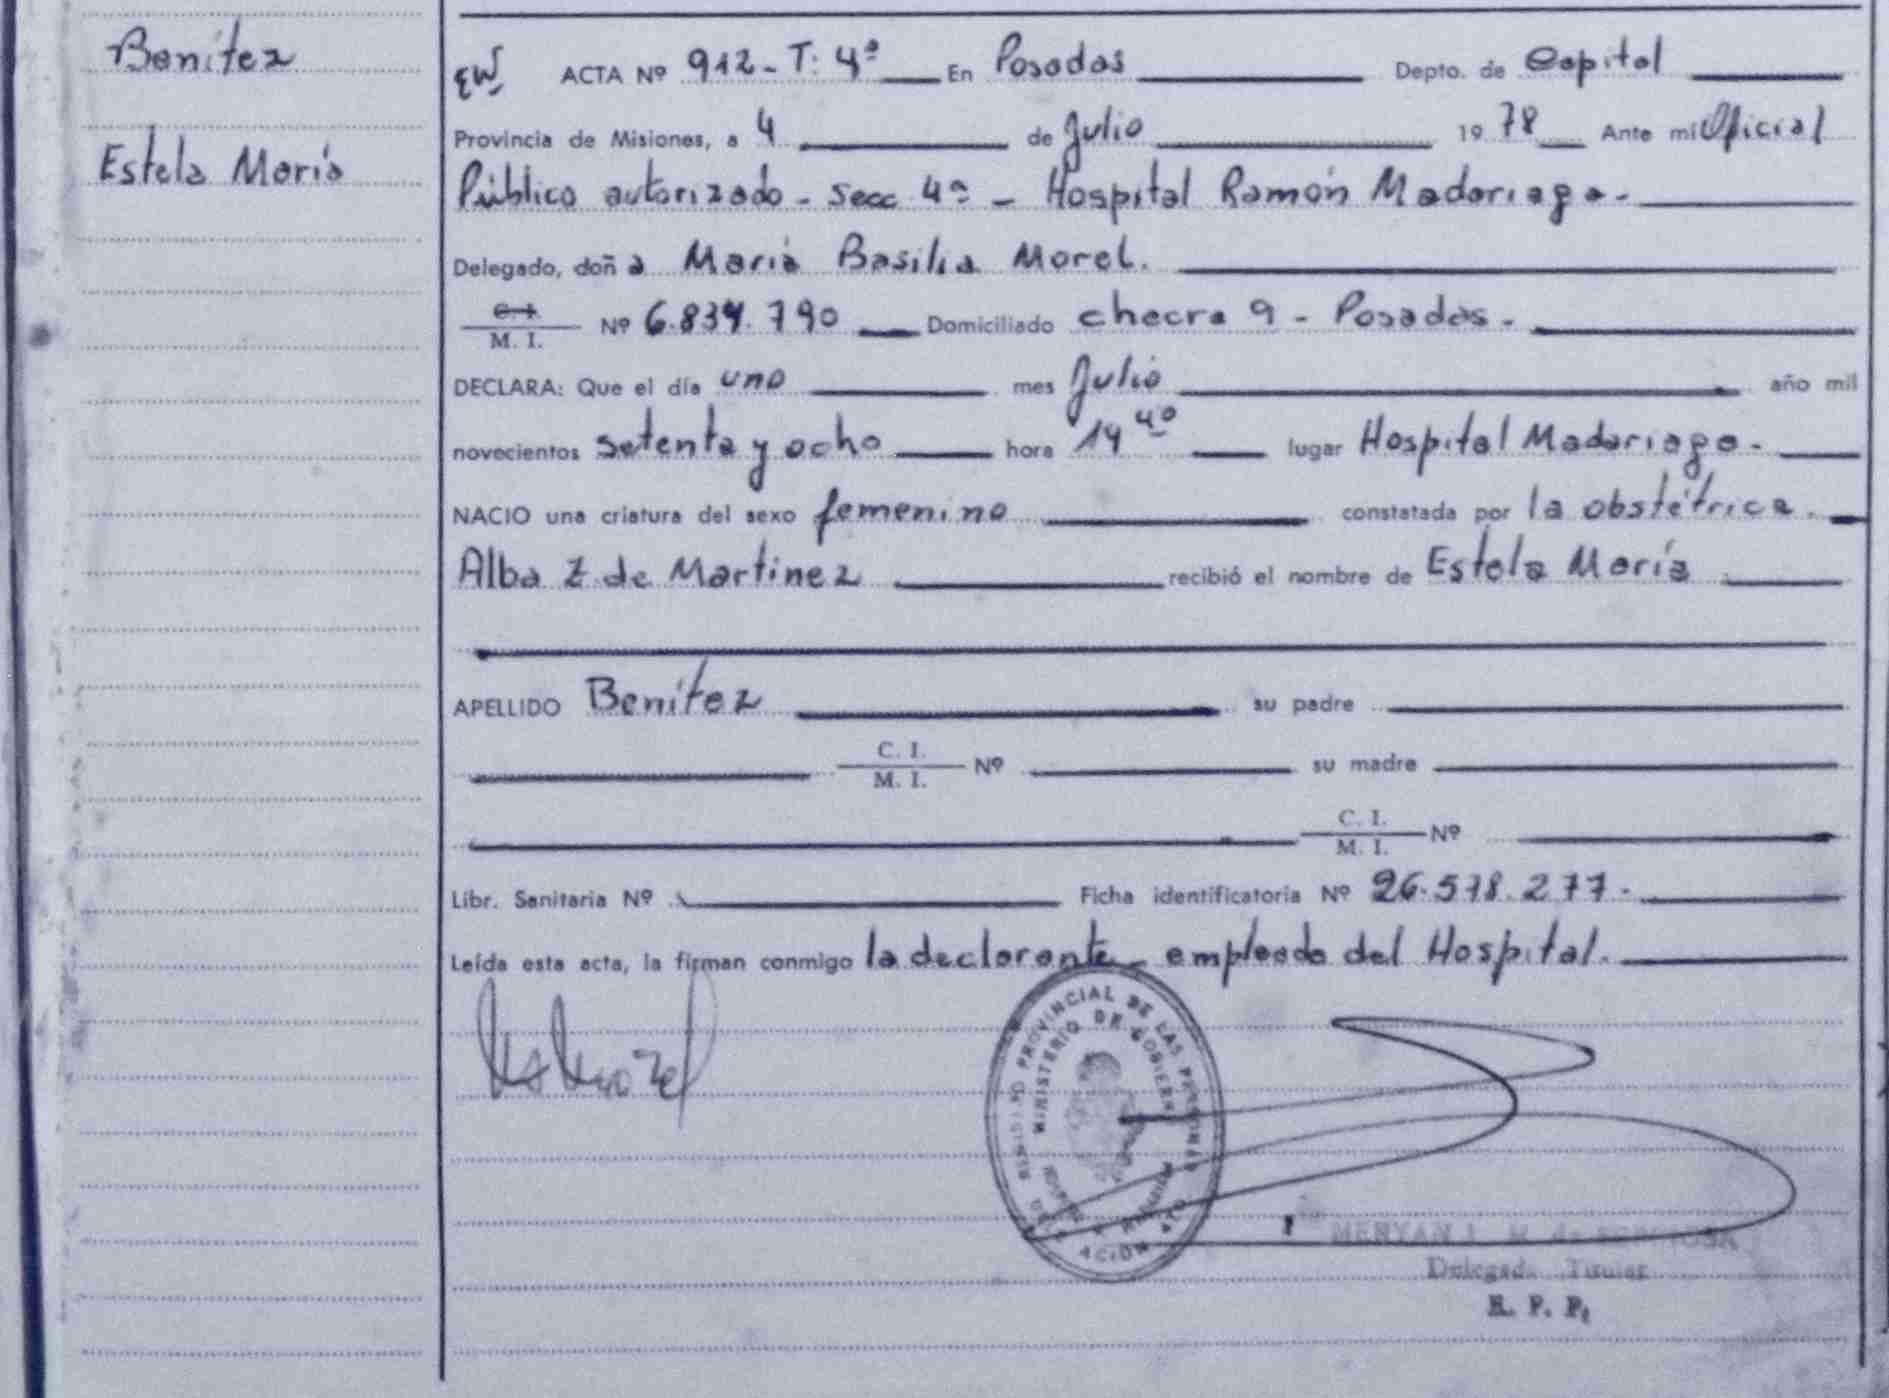 Benítez
Estela María
ACTA Nº 912 - T: 4º En Posadas Depto. de Capital
Provincia de Misiones, a 4 de Julio 1978 Ante mi Oficial
Público autorizado - Secc 4ª - Hospital Ramón Madariaga -
Delegado, doña María Basilia Morel.
C. I.
M. I. Nº 6.834.790 Domiciliado chacra 9 - Posadas -
DECLARA: Que el día uno mes Julio año mil
novecientos setenta y ocho hora 14 40 lugar Hospital Madariaga -
NACIO una criatura del sexo femenino constatada por la obstétrica.
Alba Z de Martinez recibió el nombre de Estela María
APELLIDO Benítez su padre
C. I.
M. I. Nº su madre
C. I.
M. I. Nº
Libr. Sanitaria Nº Ficha identificatoria Nº 26.578.277 -
Leída esta acta, la firman conmigo la declarante - empleada del Hospital.
PROVINCIAL DE LAS PERSONAS
MINISTERIO DE GOBIERNO
Delegada Titular
R. P. P.